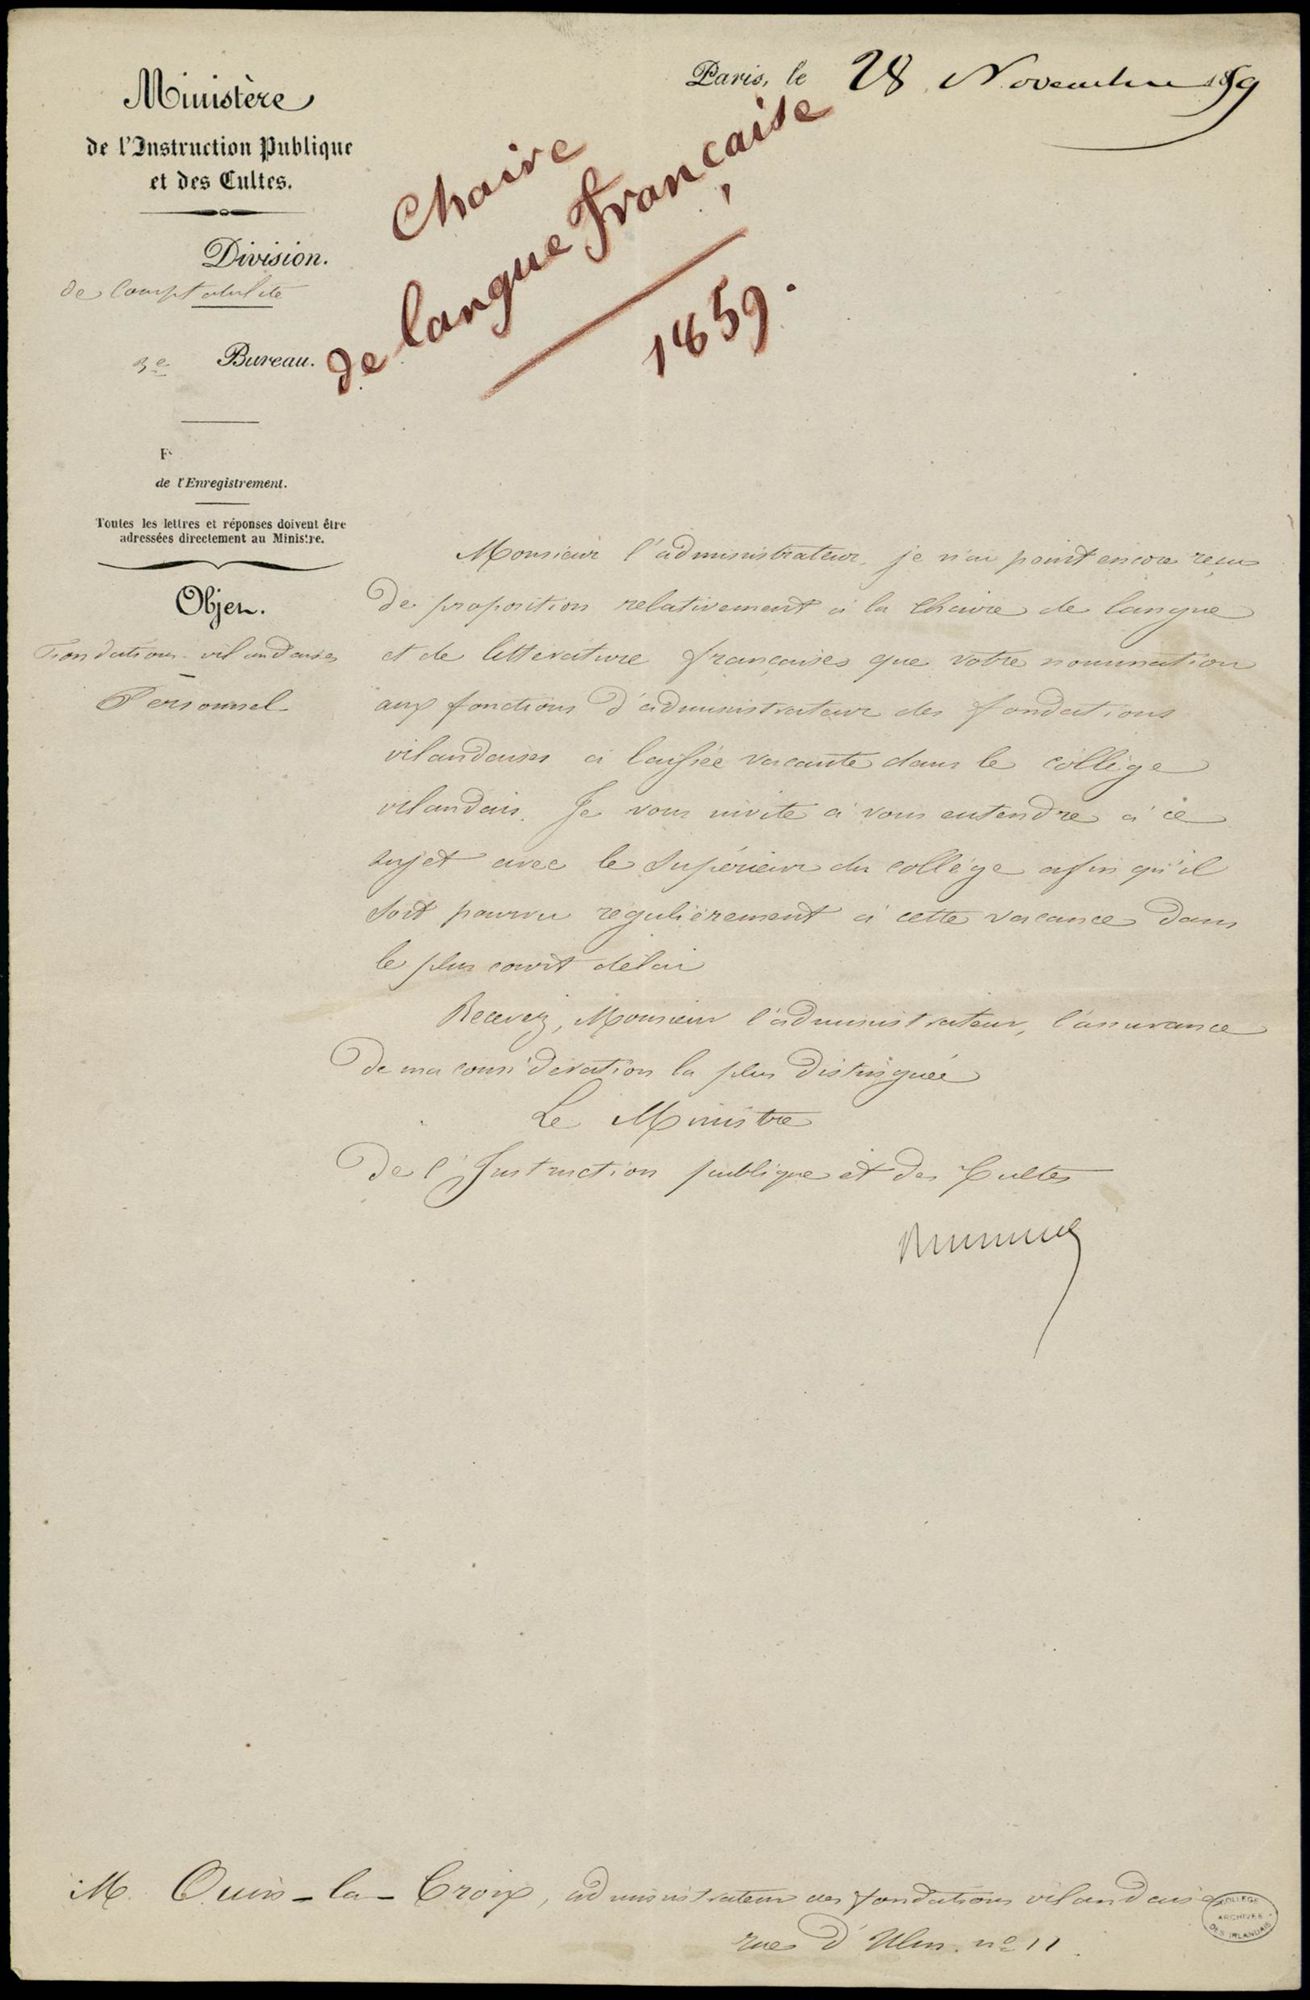 Ministère
de l'Instruction Publique
et des Cultes.
Division.
de Comptabilité
3e Bureau.
de l'Enregistrement.
Toutes les lettres et réponses doivent être
adressées directement au Ministre.
Objet.
Fondations irlandaises
Personnel
Paris, le 28 Novembre 1859
Chaire
de langue française
1859.
Monsieur l'administrateur, je n'ai point encore reçu
de proposition relativement à la chaire de langue
et de littérature françaises que votre nomination
aux fonctions d'administrateur des fondations
irlandaises a laissée vacante dans le collège
irlandais. Je vous invite à vous entendre à ce
sujet avec le Supérieur du collège afin qu'il
soit pourvu régulièrement à cette vacance dans
le plus court délai
Recevez, Monsieur l'administrateur, l'assurance
de ma considération la plus distinguée
Le Ministre
de l'Instruction publique et des Cultes
M. Ouin-la-Croix, administrateur des fondations irlandaises
rue d'Ulm. no 11.
COLLEGE
ARCHIVES
DES IRLANDAIS